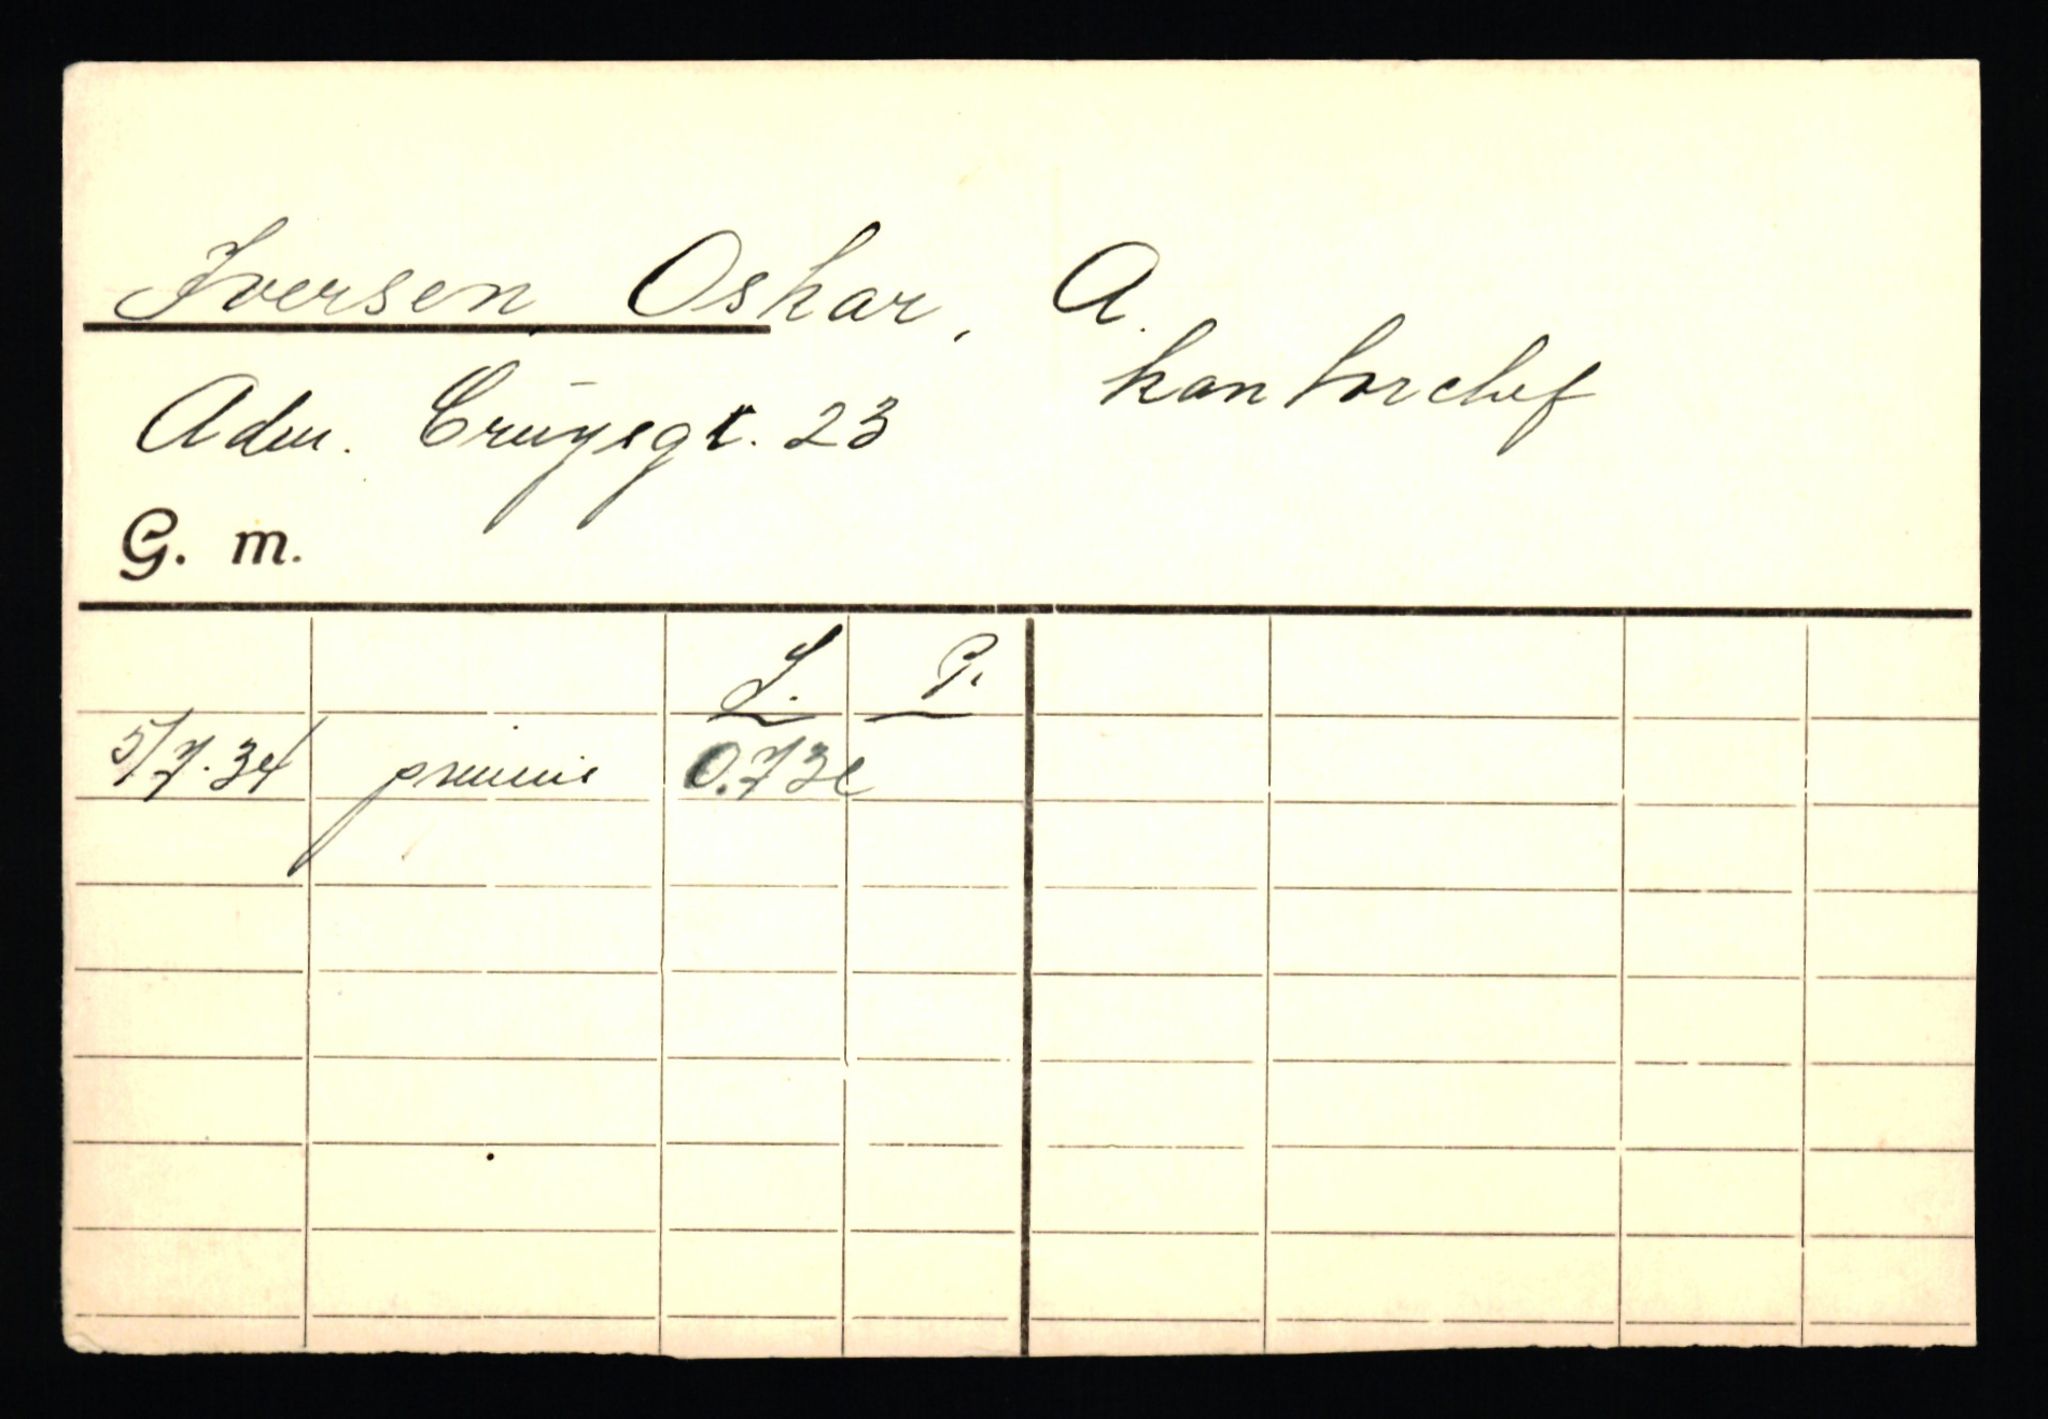 Iversen, Oskar, A.
kontorchef
Adm. Cruysgt. 23
G. m.
L. P.
5/7.34 premie 0.73c